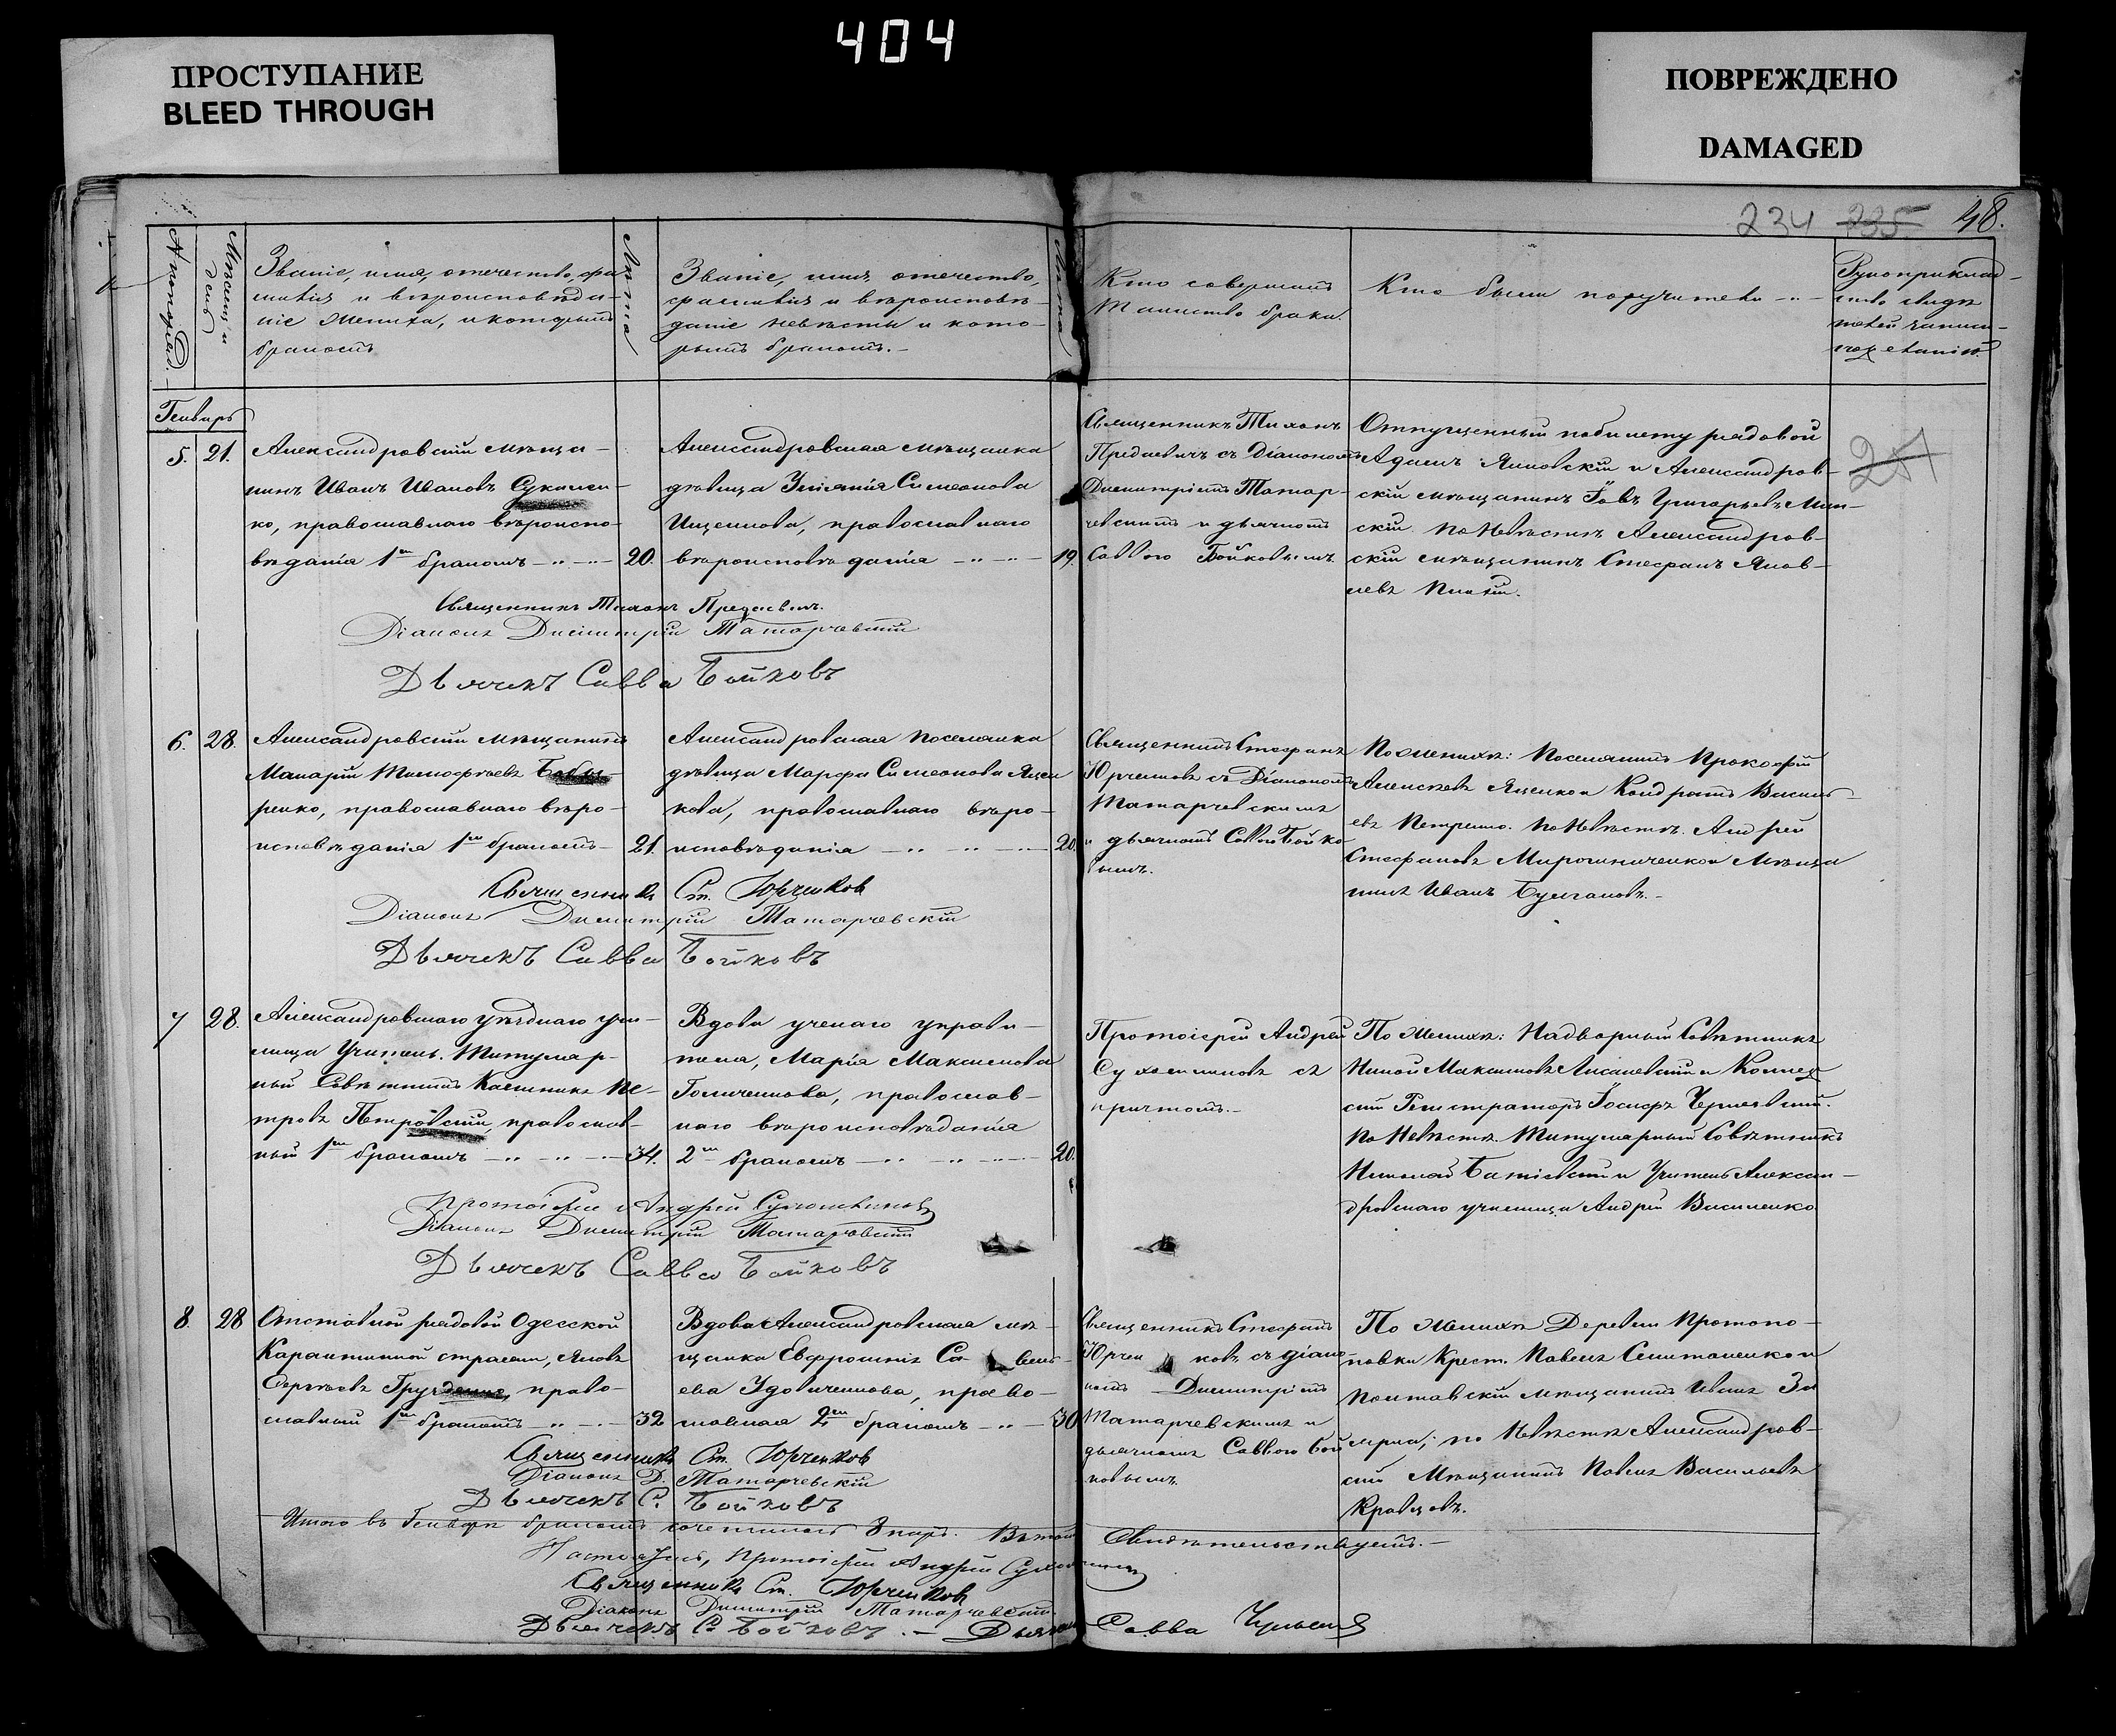 404
ПРОСТУПАНИЕ
BLEED THROUGH
ПОВРЕЖДЕНО
DAMAGED
234 235 48.
Мѣсяц и
день
Званіе, имя, отечество, фа
милія и вѣроисповѣда-
ніе жениха, и которымъ
бракомъ
Лѣта
Званіе, имя, отечество,
фамилія и вѣроисповѣ-
даніе невѣсты и кото-
рымъ бракомъ.-
Лѣта
Кто совершалъ
Таинство брака.
Кто были поручители
Рукоприклад-
ство свидѣ
телей записи
Генварь
5. 21.
Александровскій мѣща-
нинъ Иванъ Ивановъ
ко, православнаго вѣроиспо-
вѣданія 1м бракомъ 20.
Александровская мѣщанка
дѣвица Симеонова
Ищенкова, православнаго
вѣроисповѣданія 19.
Священникъ Тихонъ
съ Діакономъ
Димитріемъ Татар-
чевскимъ и дьячкомъ
Саввою Бойковымъ.
Отпущенный по билету рядовой
Адамъ Яновскій и Александров-
скій мѣщанинъ Іовъ Григорьевъ
скій по Невѣстѣ Александров-
скій мѣщанинъ Стефанъ Яков-
левъ
Священникъ Тихонъ
Діаконъ Димитрій Татарчевскій
Дьячекъ Савва Бойковъ
6. 28.
Александровскій мѣщанинъ
Макарій Тимофѣевъ
ренко, православнаго вѣро-
исповѣданія 1м бракомъ 21.
Александровская поселянка
дѣвица Марфа Симеонова Яцен
кова, православнаго вѣро-
исповѣданія 20.
Священникъ Стефанъ
Юрченковъ съ Діакономъ
Татарчевскимъ
и дьячкомъ Саввою Бойко
вымъ.
По женихѣ: Поселянинъ Прокофій
Алексѣевъ Яценко и Кондратъ Василь-
евъ Петренко. По Невѣстѣ. Андрей
Стефановъ Мирошниченко и Мѣща
нинъ Иванъ Булгаковъ.-
Священникъ Ст. Юрченков
Діаконъ Димитрій Татарчевскій
Дьячекъ Савва Бойковъ
7 28.
Александровскаго уѣзднаго учи-
лища Учитель. Титуляр-
ный Совѣтникъ Калинникъ Пе-
тровъ Петровскій, православ-
ный 1м бракомъ 34.
Вдова ученаго управи-
теля, Марія Максимова
Голиченкова, православ-
наго вѣроисповѣданія
2м бракомъ 20.
Протоіерей Андрей
Сухомлиновъ съ
причтомъ.-
По женихѣ: Надворный Совѣтникъ
Максимовъ Лисаневскій и Коллеж
скій Регистраторъ Іосифъ Чернявскій.
По Невѣстѣ. Титулярный Совѣтникъ
Николай и Учитель Алексан-
дровскаго училища Андрей Василенко
Протоіерей Андрей Сухомлиновъ
Діаконъ Димитрій Татарчевскій
Дьячекъ Савва Бойковъ
8. 28
Отставной рядовой Одесской
Карантинной стражи, Яковъ
Сергѣевъ право-
славный 1м бракомъ 32
Вдова Александровская мѣ-
щанка Евфросинія
ева Удовиченкова, право-
славная 2м бракомъ 30
Священникъ Стефанъ
Юрчен ковъ, съ діако-
номъ Димитріемъ
Татарчевскимъ и
дьячкомъ Саввою Бой
ковымъ.
По женихѣ Деревни Протопо-
повки Крест. Павелъ и
Полтавскій мѣщанинъ Иванъ
по Невѣстѣ Александров-
скій Мѣщанинъ Павелъ Васильевъ
Кравцовъ.
Священникъ Ст. Юрченков
Діаконъ Д. Татарчевскій
Дьячекъ С. Бойковъ
Итого въ Генварѣ бракомъ сочеталось 8 паръ. Въ томъ Свидѣтельствуемъ.-
Настоятель, Протоіерей Андрей Сухомлиновъ
Священникъ Ст. Юрченков
Діаконъ Димитрій Татарчевскій
Дьячекъ С. Бойковъ. - Савва